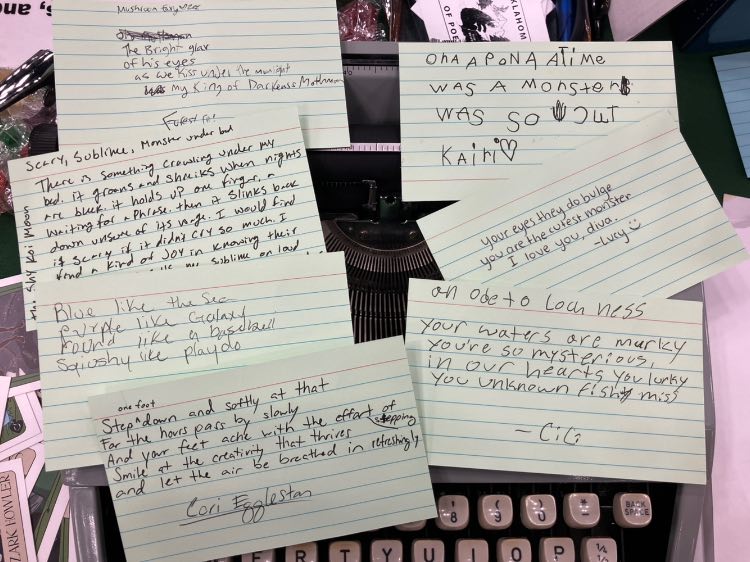 Mushroom
The Bright glow
of his eyes
as we kiss under the moonlight
my King of Darkness Mothman
Scary, Sublime, Monster under bed
There is something crawling under my
bed. it groans and shrieks when nights
are black it holds up one finger, a
waiting for a phrase. then it slinks back
down unsure of its rage. I would find
it scary if it didn't cry so much. I
find a kind of JOY in knowing their
my sublime on loud
Koi Moon
Blue like the Sea
Purple like Galaxy
round like a baseball
Squoshy like playdo
one foot
Step down and softly at that
For the hours pass by slowly
And your feet ache with the effort of stepping
Smile at the creativity that thrives
and let the air be breathed in refreshingly
Lori Eggleston
OF POE
KLAHOM
s, and
onaaponaTime
was a monster
was so cut
Kairi♡
your eyes they do bulge
you are the cutest monster
I love you, diva.
-Lucy
an ode to Loch ness
your waters are murky
you're so mysterious,
in our hearts you lurky
you unknown fishy miss
- CiCi
ZARK FOWLER
8
9
0
BACK
SPACE
E R T Y U I O P